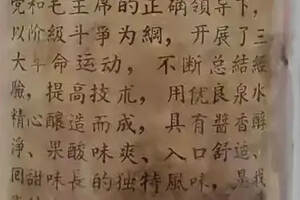 党和毛主席的正确領导下，
以阶級斗爭为綱，开展了三
大革命运动，不断总結經
驗，提高技术，用优良泉水
精心釀造而成，具有醬香醇
淨、果酸味爽、入口舒适、
回甜味長的独特風味，是我